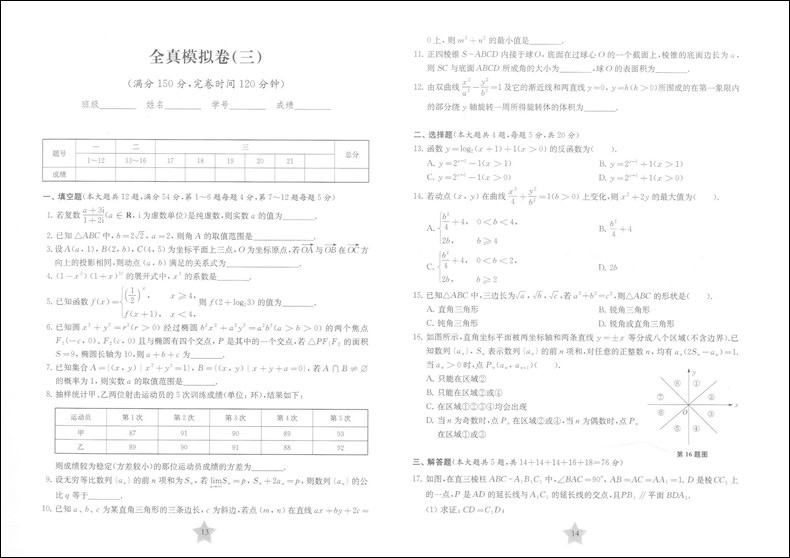 全真模拟卷(三)
(满分150分,完卷时间120分钟)
班级 姓名 学号 成绩
题号 一 二 三 总分
1~12 13~16 17 18 19 20 21
成绩
一、填空题(本大题共12题,满分54分,第1~6题每题4分,第7~12题每题5分)
1. 若复数 (a+3i)/(1+2i) (a∈R,i为虚数单位)是纯虚数,则实数a的值为________.
2. 已知△ABC中,b=2√2,a=2,则角A的取值范围是________.
3. 设A(a,1),B(2,b),C(4,5)为坐标平面上三点,O为坐标原点,若OA与OB在OC方
向上的投影相同,则动点(a,b)满足的关系式为________.
的展开式中,
的系数是________.
5. 已知函数f(x)={(1/2)^x, x≥4,
f(x+1), x<4,
则f(2+log₂3)的值为________.
6. 已知圆x²+y²=r²(r>0)经过椭圆b²x²+a²y²=a²b²(a>b>0)的两个焦点
F₁(-c,0)、F₂(c,0)且与椭圆有四个交点,P是其中的一个交点,若△PF₁F₂的面积
S=9,椭圆长轴为10,则a+b+c为________.
7. 已知集合A={(x,y)|x²+y²=1},B={(x,y)|x+y+a=0},若A∩B≠∅
的概率为1,则实数a的取值范围是________.
8. 抽样统计甲、乙两位射击运动员的5次训练成绩(单位:环),结果如下:
运动员 第1次 第2次 第3次 第4次 第5次
甲 87 91 90 89 93
乙 89 90 91 88 92
则成绩较为稳定(方差较小)的那位运动员成绩的方差为________.
9. 设无穷等比数列{aₙ}的前n项和为Sₙ,若limSₙ=p,Sₙ+2aₙ=p,则数列{aₙ}的公
比q等于________.
10. 已知a、b、c为某直角三角形的三条边长,c为斜边,若点(m,n)在直线ax+by+2c=
13
0上,则m²+n²的最小值是________.
11. 正四棱锥S-ABCD内接于球O,底面在过球心O的一个截面上,棱锥的底面边长为a,
则SC与底面ABCD所成角的大小为________,球O的表面积为________.
12. 由双曲线x²/a²-y²/b²=1及它的渐近线和两直线y=0,y=h(h>0)所围成的在第一象限内
的部分绕y轴旋转一周所得旋转体的体积为________.
二、选择题(本大题共4题,每题5分,共20分)
13. 函数y=log₂(x+1)+1(x>0)的反函数为( ).
A. y=2ˣ⁻¹-1(x>1) B. y=2ˣ⁻¹+1(x>1)
C. y=2ˣ⁻¹-1(x>0) D. y=2ˣ⁻¹+1(x>0)
14. 若动点(x,y)在曲线x²/4+y²/b²=1(b>0)上变化,则x²+2y的最大值为( ).
A. {b²/4+4, 0<b<4, 2b, b≥4 B. b²/4+4
C. {b²/4+4, 0<b<2, 2b, b≥2 D. 2b
15. 已知△ABC中,三边长为√a,√b,√c,若a²+b²=c²,则△ABC的形状是( ).
A. 直角三角形 B. 锐角三角形
C. 钝角三角形 D. 锐角或直角三角形
16. 如图所示,直角坐标平面被两坐标轴和两条直线y=±x等分成八个区域(不含边界).已
知数列{aₙ},Sₙ表示数列{aₙ}的前n项和,对任意的正整数n,均有aₙ(2Sₙ-aₙ)=1,
当aₙ>0时,点Pₙ(aₙ,aₙ₊₁)( ).
A. 只能在区域②
B. 只能在区域②④
C. 在区域①②③④均会出现
D. 当n为奇数时,点Pₙ在区域②或④,当n为偶数时,点Pₙ
在区域①或③
y
⑧ ①
⑦ ②
O x
⑥ ③
⑤ ④
第16题图
三、解答题(本大题共5题,共14+14+14+16+18=76分)
17. 如图,在直三棱柱ABC-A₁B₁C₁中,∠BAC=90°,AB=AC=AA₁=1,D是棱CC₁上
的一点,P是AD的延长线与A₁C₁的延长线的交点,且PB₁∥平面BDA₁.
(1) 求证:CD=C₁D;
14